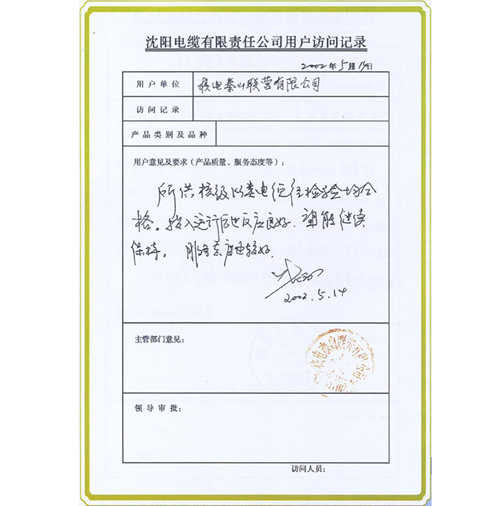 沈阳电缆有限责任公司用户访问记录
2002年5月14日
用户单位 核电秦山联营有限公司
访问记录
产品类别及品种
用户意见及要求（产品质量、服务态度等）：
所供核级以类电缆经检验均合
格。投入运行后反应良好。望能继续
保持。服务态度也较好。
2002.5.14
主管部门意见：
核电秦山联营有限公司
领导审批：
访问人员：